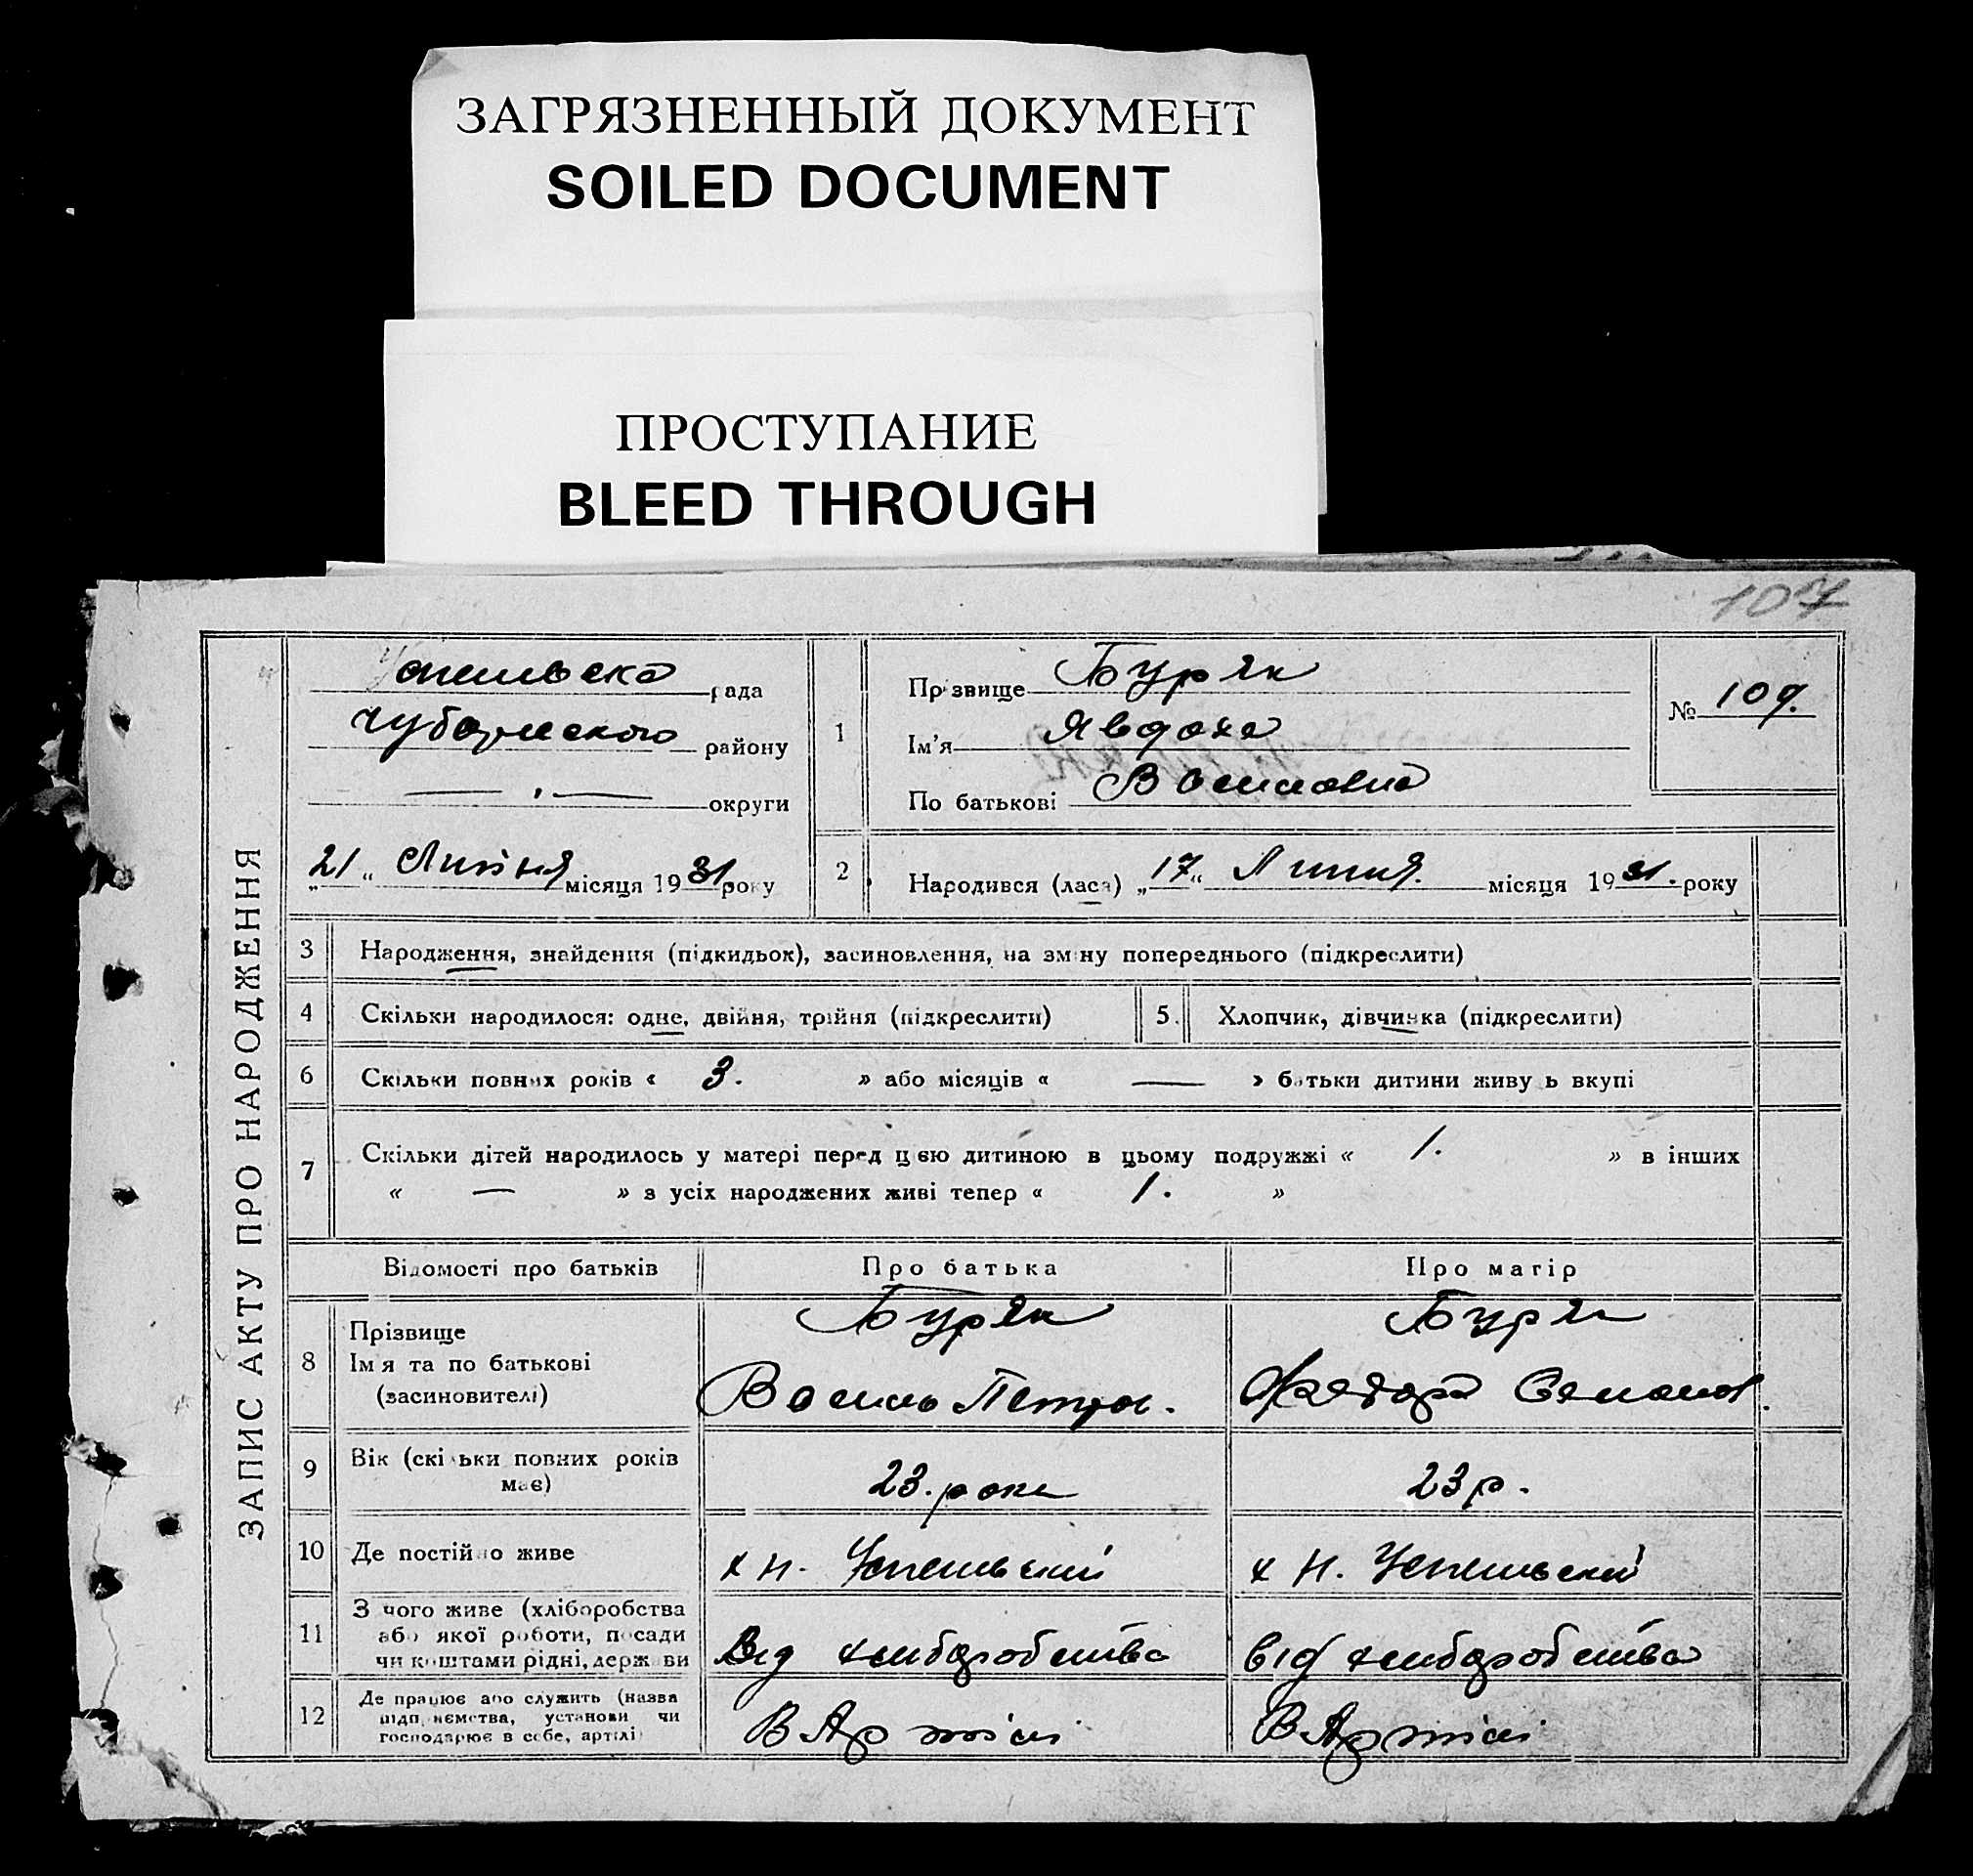 ЗАГРЯЗНЕННЫЙ ДОКУМЕНТ
SOILED DOCUMENT
ПРОСТУПАНИЕ
BLEED THROUGH
107
ЗАПИС АКТУ ПРО НАРОДЖЕННЯ
рада
району
— „ — округи
„21“ Липня місяця 1931 року
1
Прізвище Буряк
Ім'я Явдоха
По батькові Василовна
№ 109.
2
Народився (лася) „17“ Липня. місяця 1931. року
3 Народження, знайдення (підкидьок), засиновлення, на зміну попереднього (підкреслити)
4 Скільки народилося: одне, двійня, трійня (підкреслити)
5. Хлопчик, дівчинка (підкреслити)
6 Скільки повних років « 3. » або місяців « — » батьки дитини живуть вкупі
7 Скільки дітей народилось у матері перед цією дитиною в цьому подружжі « 1. » в інших
« — » з усіх народжених живі тепер « 1. »
Відомості про батьків Про батька Про матір
8 Прізвище
Ім'я та по батькові
(засиновителі)
Буряк
Василь Петров.
Буряк
Семенов.
9 Вік (скільки повних років
має)
23. роки
23 р.
10 Де постійно живе
х Н. Успенський
х Н. Успенський
11 З чого живе (хліборобства
або якої роботи, посади
чи коштами рідні, держави
Від хліборобства
від хліборобства
12 Де працює або служить (назва
підприємства, установи чи
господарює в себе, артілі)
В Артілі
В Артілі